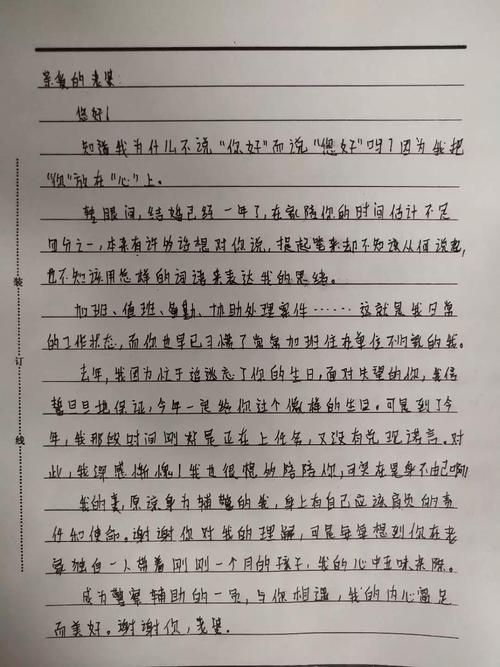 亲爱的老婆:
您好!
知道我为什么不说“你好”而说“您好”吗?因为我把
“你”放在“心”上。
转眼间,结婚已经一年了,在家陪你的时间估计不足
四分之一,本来有许多话想对你说,提起笔来却不知该从何说起,
也不知该用怎样的词语来表达我的思绪。
加班、值班、备勤、协助处理案件……这就是我日常
的工作状态,而你也早已习惯了常常加班住在单位不归家的我。
去年,我因为忙于追逃忘了你的生日,面对失望的你,我信
誓旦旦地保证,今年一定给你过个像样的生日。可是到了今
年,我那段时间刚好是正在上任务,又没有兑现诺言。对
此,我深感惭愧!我也很想多陪陪你,可实在是身不由己啊!
我的妻,原谅身为辅警的我,身上有自己应该肩负的责
任和使命。谢谢你对我的理解,可是每每想到你在老
家独自一人带着刚刚一个月的孩子,我的心中五味杂陈。
成为警察辅助的一员,与你相遇,我的内心富足
而美好。谢谢你,老婆.
装
订
线